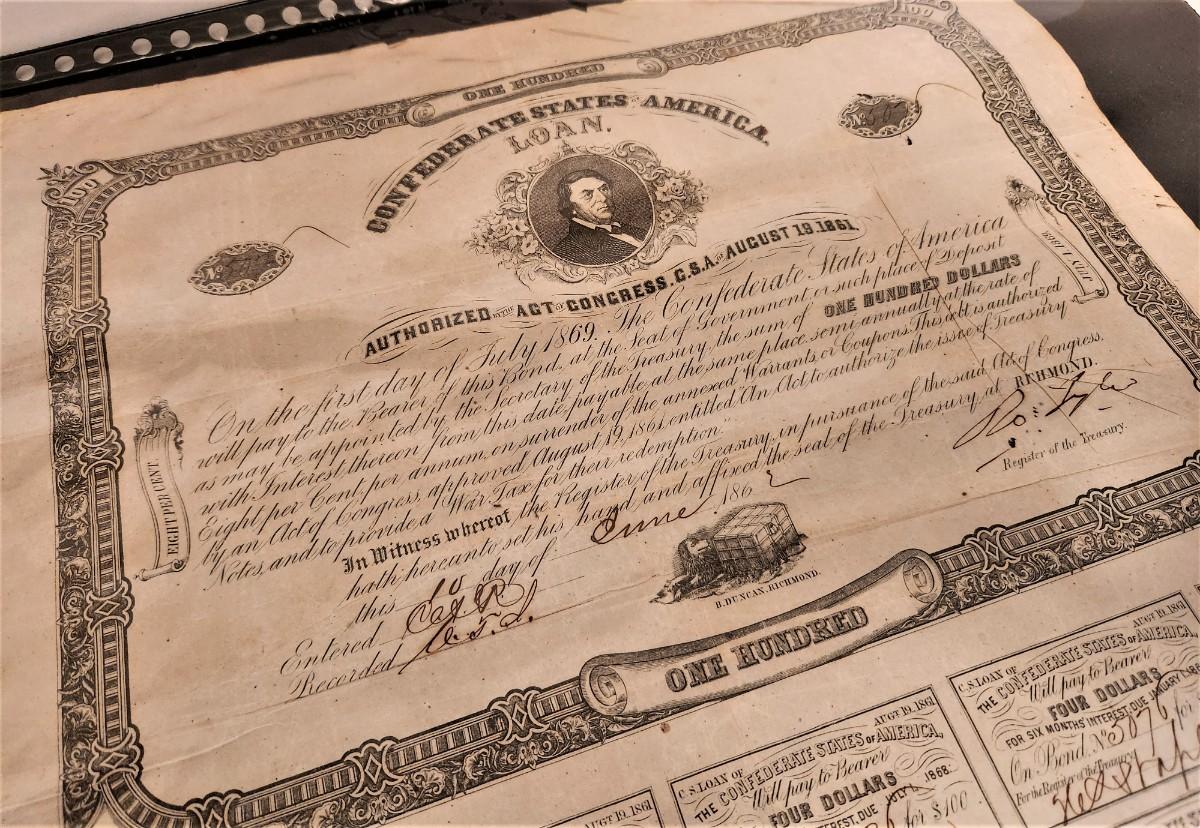 100
ONE HUNDRED
100
CONFEDERATE STATES OF AMERICA.
LOAN.
No
No
AUTHORIZED BY THE ACT OF CONGRESS, C.S.A. OF AUGUST 19. 1861.
On the first day of July 1869. The Confederate States of America
will pay to the Bearer of this Bond, at the Seat of Government, or such place of Deposit
as may be appointed by the Secretary of the Treasury, the sum of ONE HUNDRED DOLLARS
with Interest thereon from this date, payable at the same place semi-annually at the rate of
Eight per Cent. per annum, on surrender of the annexed Warrants or Coupons. This debt is authorized
by an Act of Congress, approved August 19, 1861, entitled "An Act to authorize the issue of Treasury
Notes, and to provide a War Tax for their redemption."
In Witness whereof the Register of the Treasury, in pursuance of the said Act of Congress,
hath hereunto set his hand and affixed the seal of the Treasury, at RICHMOND.
this 10 day of June 186 2
Entered
Recorded
EIGHT PER CENT.
JULY 1, 1869.
Register of the Treasury.
B. DUNCAN, RICHMOND.
ONE HUNDRED
AUGT 19, 1861
C.S. LOAN OF AUGT 19, 1861
THE CONFEDERATE STATES OF AMERICA,
Will pay to Bearer
FOUR DOLLARS
INTEREST, DUE JULY 1, 1868.
for $100
C.S. LOAN OF AUGT 19, 1861
THE CONFEDERATE STATES OF AMERICA
Will pay to Bearer
FOUR DOLLARS
FOR SIX MONTHS' INTEREST, DUE JANUARY
On Bond No 5076 for
For the Register of the Treasury.